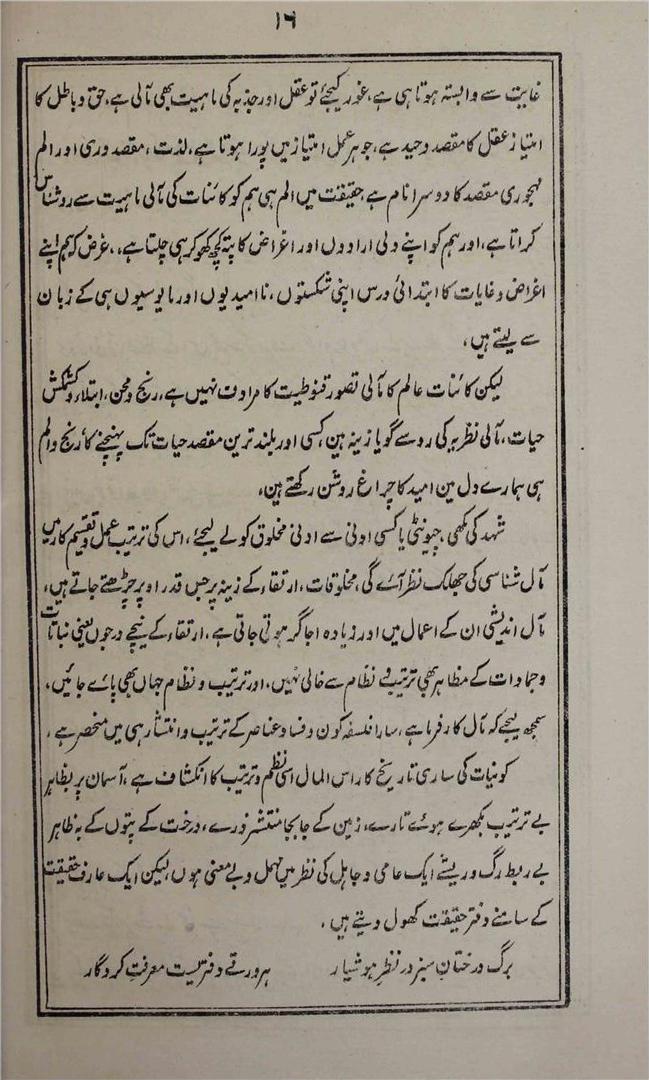 ۱۶
غایت سے وابستہ ہوتا ہی ہے، غور کیجئے تو عقل اور جذبہ کی ماہیت بھی مآلی ہے، حق و باطل کا
امتیاز عقل کا مقصد وحید ہے، جو ہر عمل امتیاز میں پورا ہوتا ہے، لذت، مقصدوری اور الم
مہجوری مقصد کا دوسرا نام ہے، حقیقت میں الم ہی ہم کو کائنات کی مآلی ماہیت سے روشناس
کراتا ہے، اور ہم کو اپنے دلی ارادوں اور اغراض کا پتہ کچھ کھو کر ہی چلتا ہے،، غرض کہ ہم اپنے
اغراض و غایات کا ابتدائی درس اپنی شکستوں، ناامیدیوں اور مایوسیوں ہی کے زبان
سے لیتے ہیں،
لیکن کائنات عالم کا مآلی تصور قنوطیت کا مرادف نہیں ہے، رنج و محن، ابتلاء و کشمکش
حیات، مآلی نظریہ کی رو سے گویا زینہ ہین، کسی اور بلند ترین مقصد حیات تک پہنچنے کا، رنج و الم
ہی ہمارے دل مین امید کا چراغ روشن رکھتے ہین،
شہد کی مکھی، چیونٹی یا کسی ادنیٰ سے ادنیٰ مخلوق کو لے لیجئے، اس کی ترتیب عمل و تقسیم کار میں
مآل شناسی کی جھلک نظر آئے گی، مخلوقات، ارتقاء کے زینہ پر جس قدر اوپر چڑھتے جاتے ہیں،
مآل اندیشی ان کے اعمال میں اور زیادہ اجاگر ہوتی جاتی ہے، ارتقاء کے نیچے درجوں یعنی نباتات
و جمادات کے مظاہر بھی ترتیب و نظام سے خالی نہیں، اور ترتیب و نظام جہاں بھی پائے جائیں،
سمجھ لیجے کہ مآل کار فرما ہے، سارا فلسفہ کون و فساد عناصر کے ترتیب و انتشار ہی میں منحصر ہے،
کونیات کی ساری تاریخ کا راس المال اسی نظم و ترتیب کا انکشاف ہے، آسمان پر بظاہر
بے ترتیب بکھرے ہوئے تارے، زمین کے جا بجا منتشر ذرے، درخت کے پتوں کے بہ ظاہر
بے ربط رگ و ریشے ایک عامی و جاہل کی نظر میں مہمل و بے معنی ہوں، لیکن ایک عارف حقیقت
کے سامنے دفتر حقیقت کھول دیتے ہیں،
برگ درختانِ سبز در نظرِ ہوشیار ہر ورقے دفتریست معرفتِ کردگار